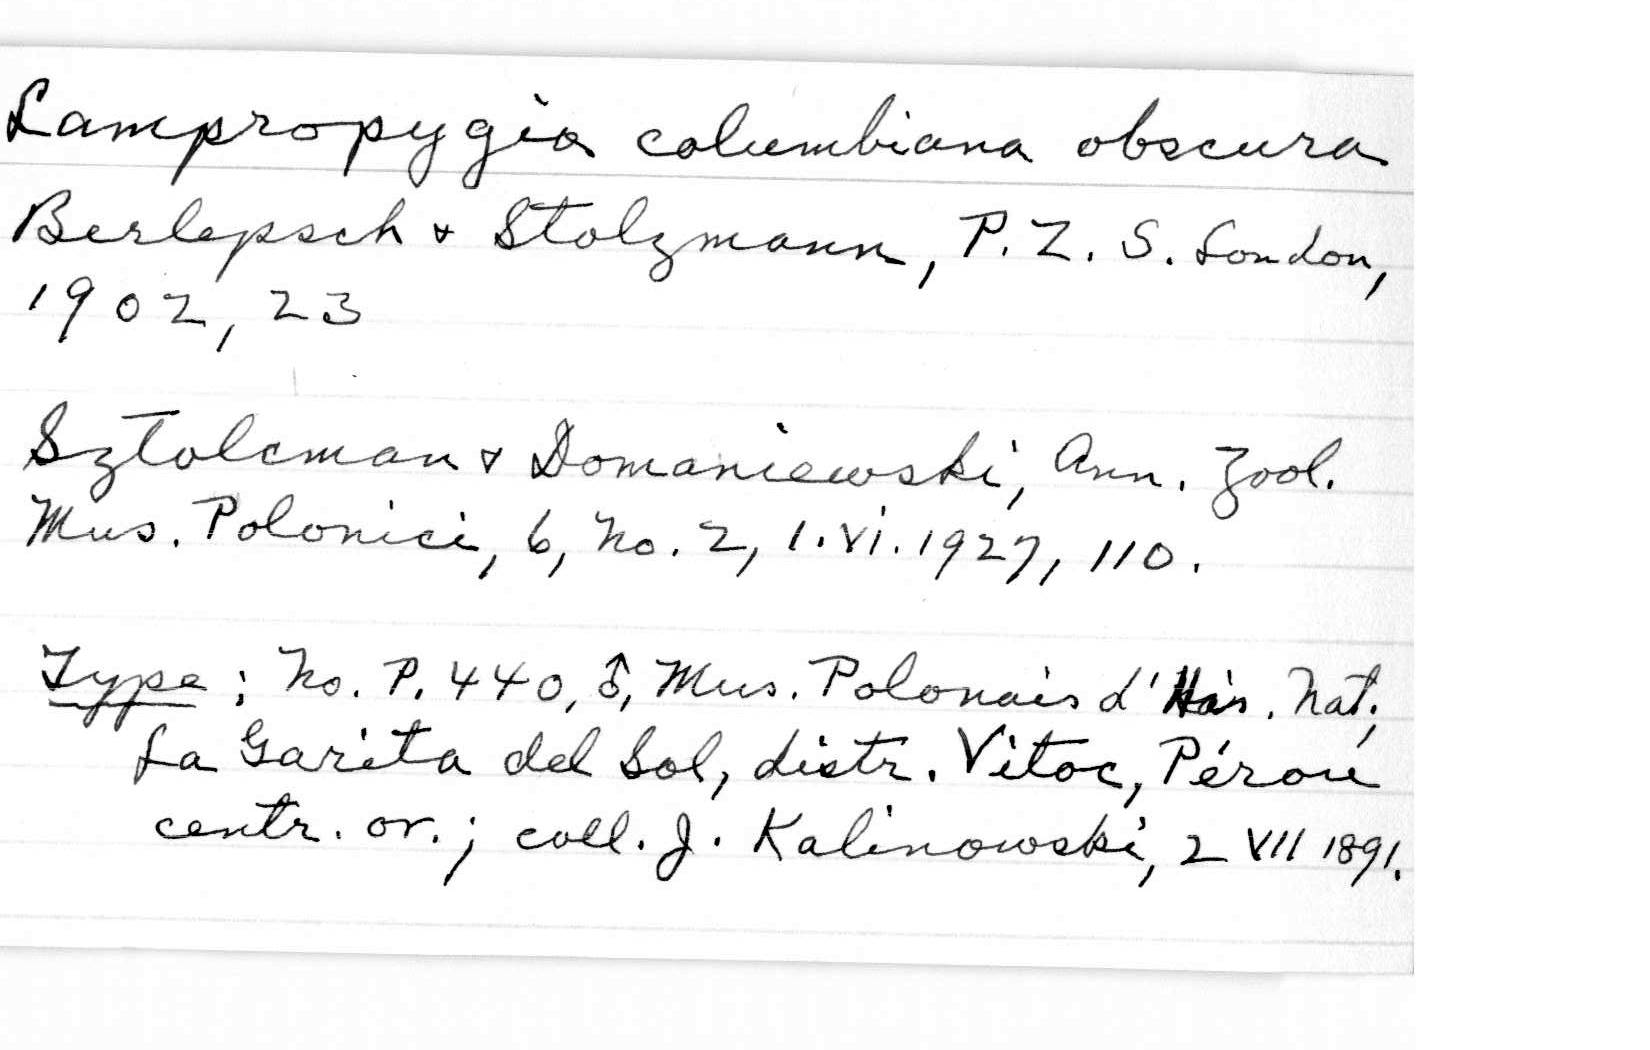 Lampropygia columbiana obscura
Berlepsch & Stolzmann, P. Z. S. London,
1902, 23
Sztolcman & Domaniewski, Ann. Zool.
Mus. Polonici, 6, No. 2, 1. vi. 1927, 110.
Type; No. P. 440, ♂, Mus. Polonais d'His. Nat;
La Garita del Sol, distr. Vitoc, Pérou
centr. or.; coll. J. Kalinowski, 2 VII 1891.